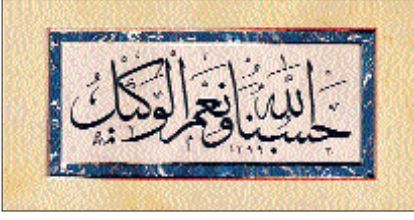 حسبنا الله ونعم الوكيل
١٢٩٩